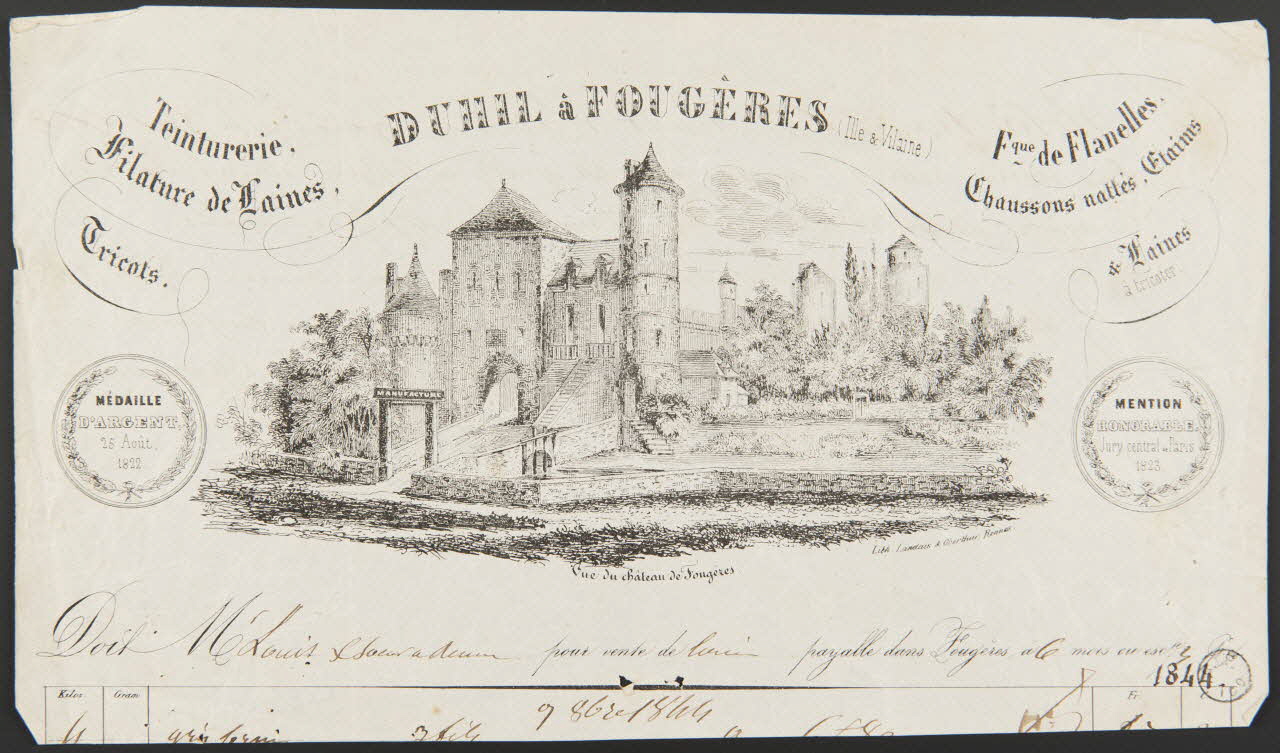 DUHIL à FOUGÈRES (Ille & Vilaine)
Teinturerie,
Filature de Laines,
Tricots.
Fque de Flanelles,
Chaussons nattés, Etaims
& Laines
à tricoter.
MANUFACTURE
MÉDAILLE
D'ARGENT,
25 Août,
1822.
MENTION
HONORABLE,
Jury central de Paris
1823.
Lith. Landais & Oberthur, Rennes
Vue du château de Fougères
Doit Mr Louis pour vente de payable dans Fougères à 6 mois ou escte
1844
Kilos. Gram Fr
9 8bre 1844